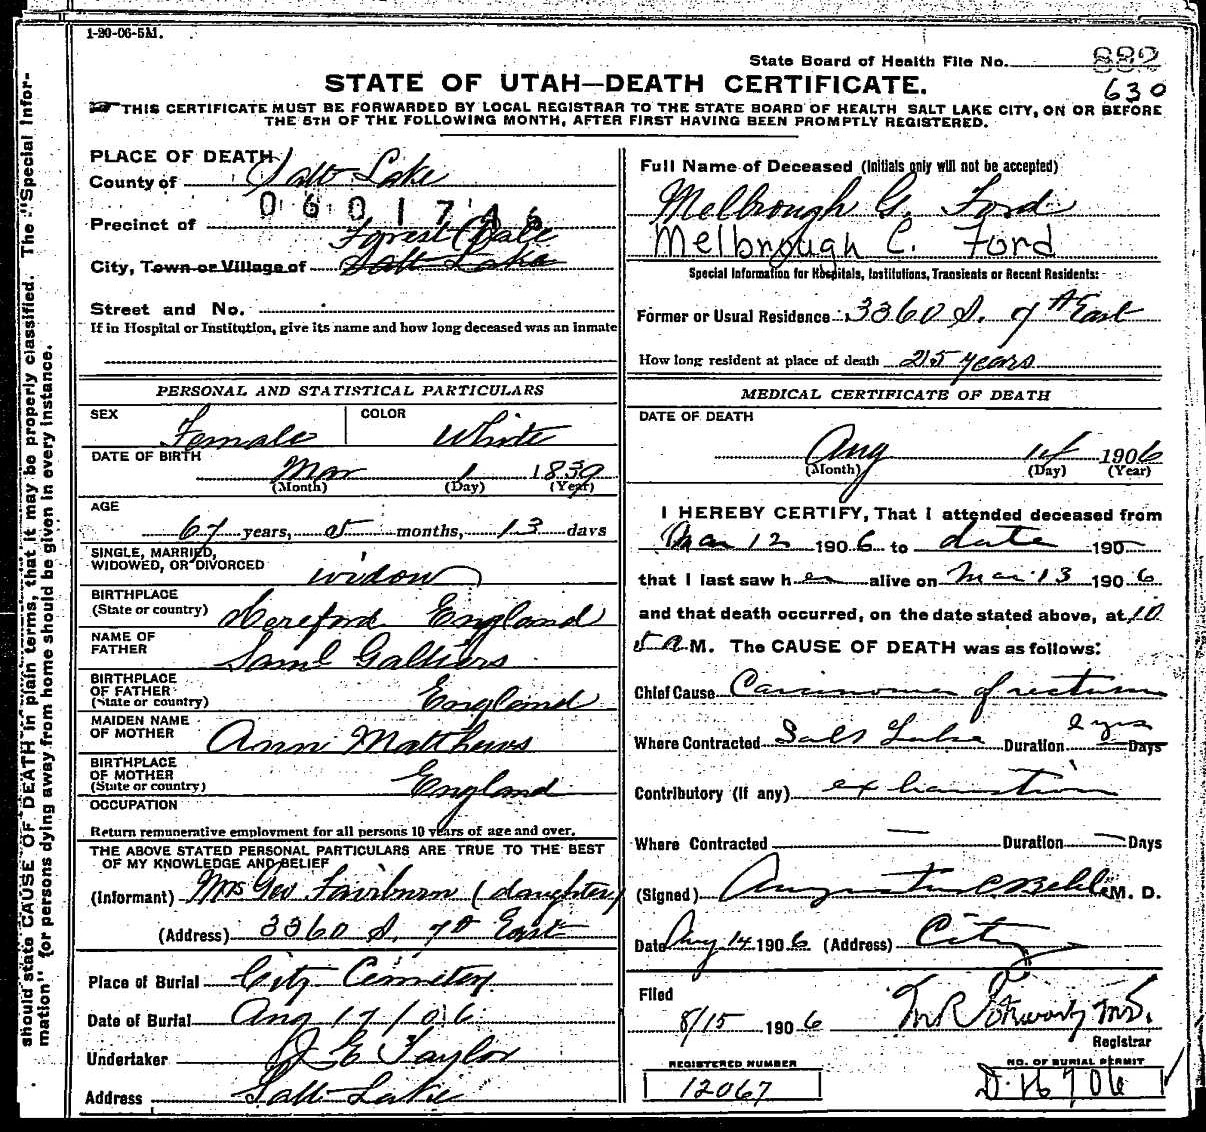 1-20-06-5M.
State Board of Health File No. 882
630
STATE OF UTAH—DEATH CERTIFICATE.
THIS CERTIFICATE MUST BE FORWARDED BY LOCAL REGISTRAR TO THE STATE BOARD OF HEALTH SALT LAKE CITY, ON OR BEFORE
THE 5TH OF THE FOLLOWING MONTH, AFTER FIRST HAVING BEEN PROMPTLY REGISTERED.
should state CAUSE OF DEATH in plain terms, that it may be properly classified. The "Special Infor-
mation" for persons dying away from home should be given in every instance.
PLACE OF DEATH
County of Salt Lake
0601746
Precinct of Forest Dale
City, Town or Village of Salt Lake
Street and No.
If in Hospital or Institution, give its name and how long deceased was an inmate
PERSONAL AND STATISTICAL PARTICULARS
SEX Female COLOR White
DATE OF BIRTH Mar 1 1839
(Month) (Day) (Year)
AGE
67 years, 5 months, 13 days
SINGLE, MARRIED,
WIDOWED, OR DIVORCED widow
BIRTHPLACE
(State or country) Hereford England
NAME OF
FATHER Saml Galliers
BIRTHPLACE
OF FATHER
(State or country) England
MAIDEN NAME
OF MOTHER Ann Matthews
BIRTHPLACE
OF MOTHER
(State or country) England
OCCUPATION
Return remunerative employment for all persons 10 years of age and over.
THE ABOVE STATED PERSONAL PARTICULARS ARE TRUE TO THE BEST
OF MY KNOWLEDGE AND BELIEF
(Informant) Mrs Geo Fairburn (daughter)
(Address) 3360 S. 7th East
Place of Burial City Cemetery
Date of Burial Aug 17/06
Undertaker J E Taylor
Address Salt Lake
Full Name of Deceased (Initials only will not be accepted)
Melbrough G. Ford
Melbrough C. Ford
Special Information for Hospitals, Institutions, Transients or Recent Residents:
Former or Usual Residence 3360 S. 7th East
How long resident at place of death 25 years
MEDICAL CERTIFICATE OF DEATH
DATE OF DEATH
Aug 14 1906
(Month) (Day) (Year)
I HEREBY CERTIFY, That I attended deceased from
Mar 12 1906 to date 190
that I last saw her alive on Mar 13 1906
and that death occurred, on the date stated above, at 10
5 A M. The CAUSE OF DEATH was as follows:
Chief Cause Carcinoma of rectum
Where Contracted Salt Lake Duration 2 yrs Days
Contributory (if any) exhaustion
Where Contracted — Duration — Days
(Signed) Augustus C Behle M. D.
Date Aug 14 1906 (Address) City
Filed
8/15 1906 M.D.
Registrar
REGISTERED NUMBER
12067
NO. OF BURIAL PERMIT
D 16706